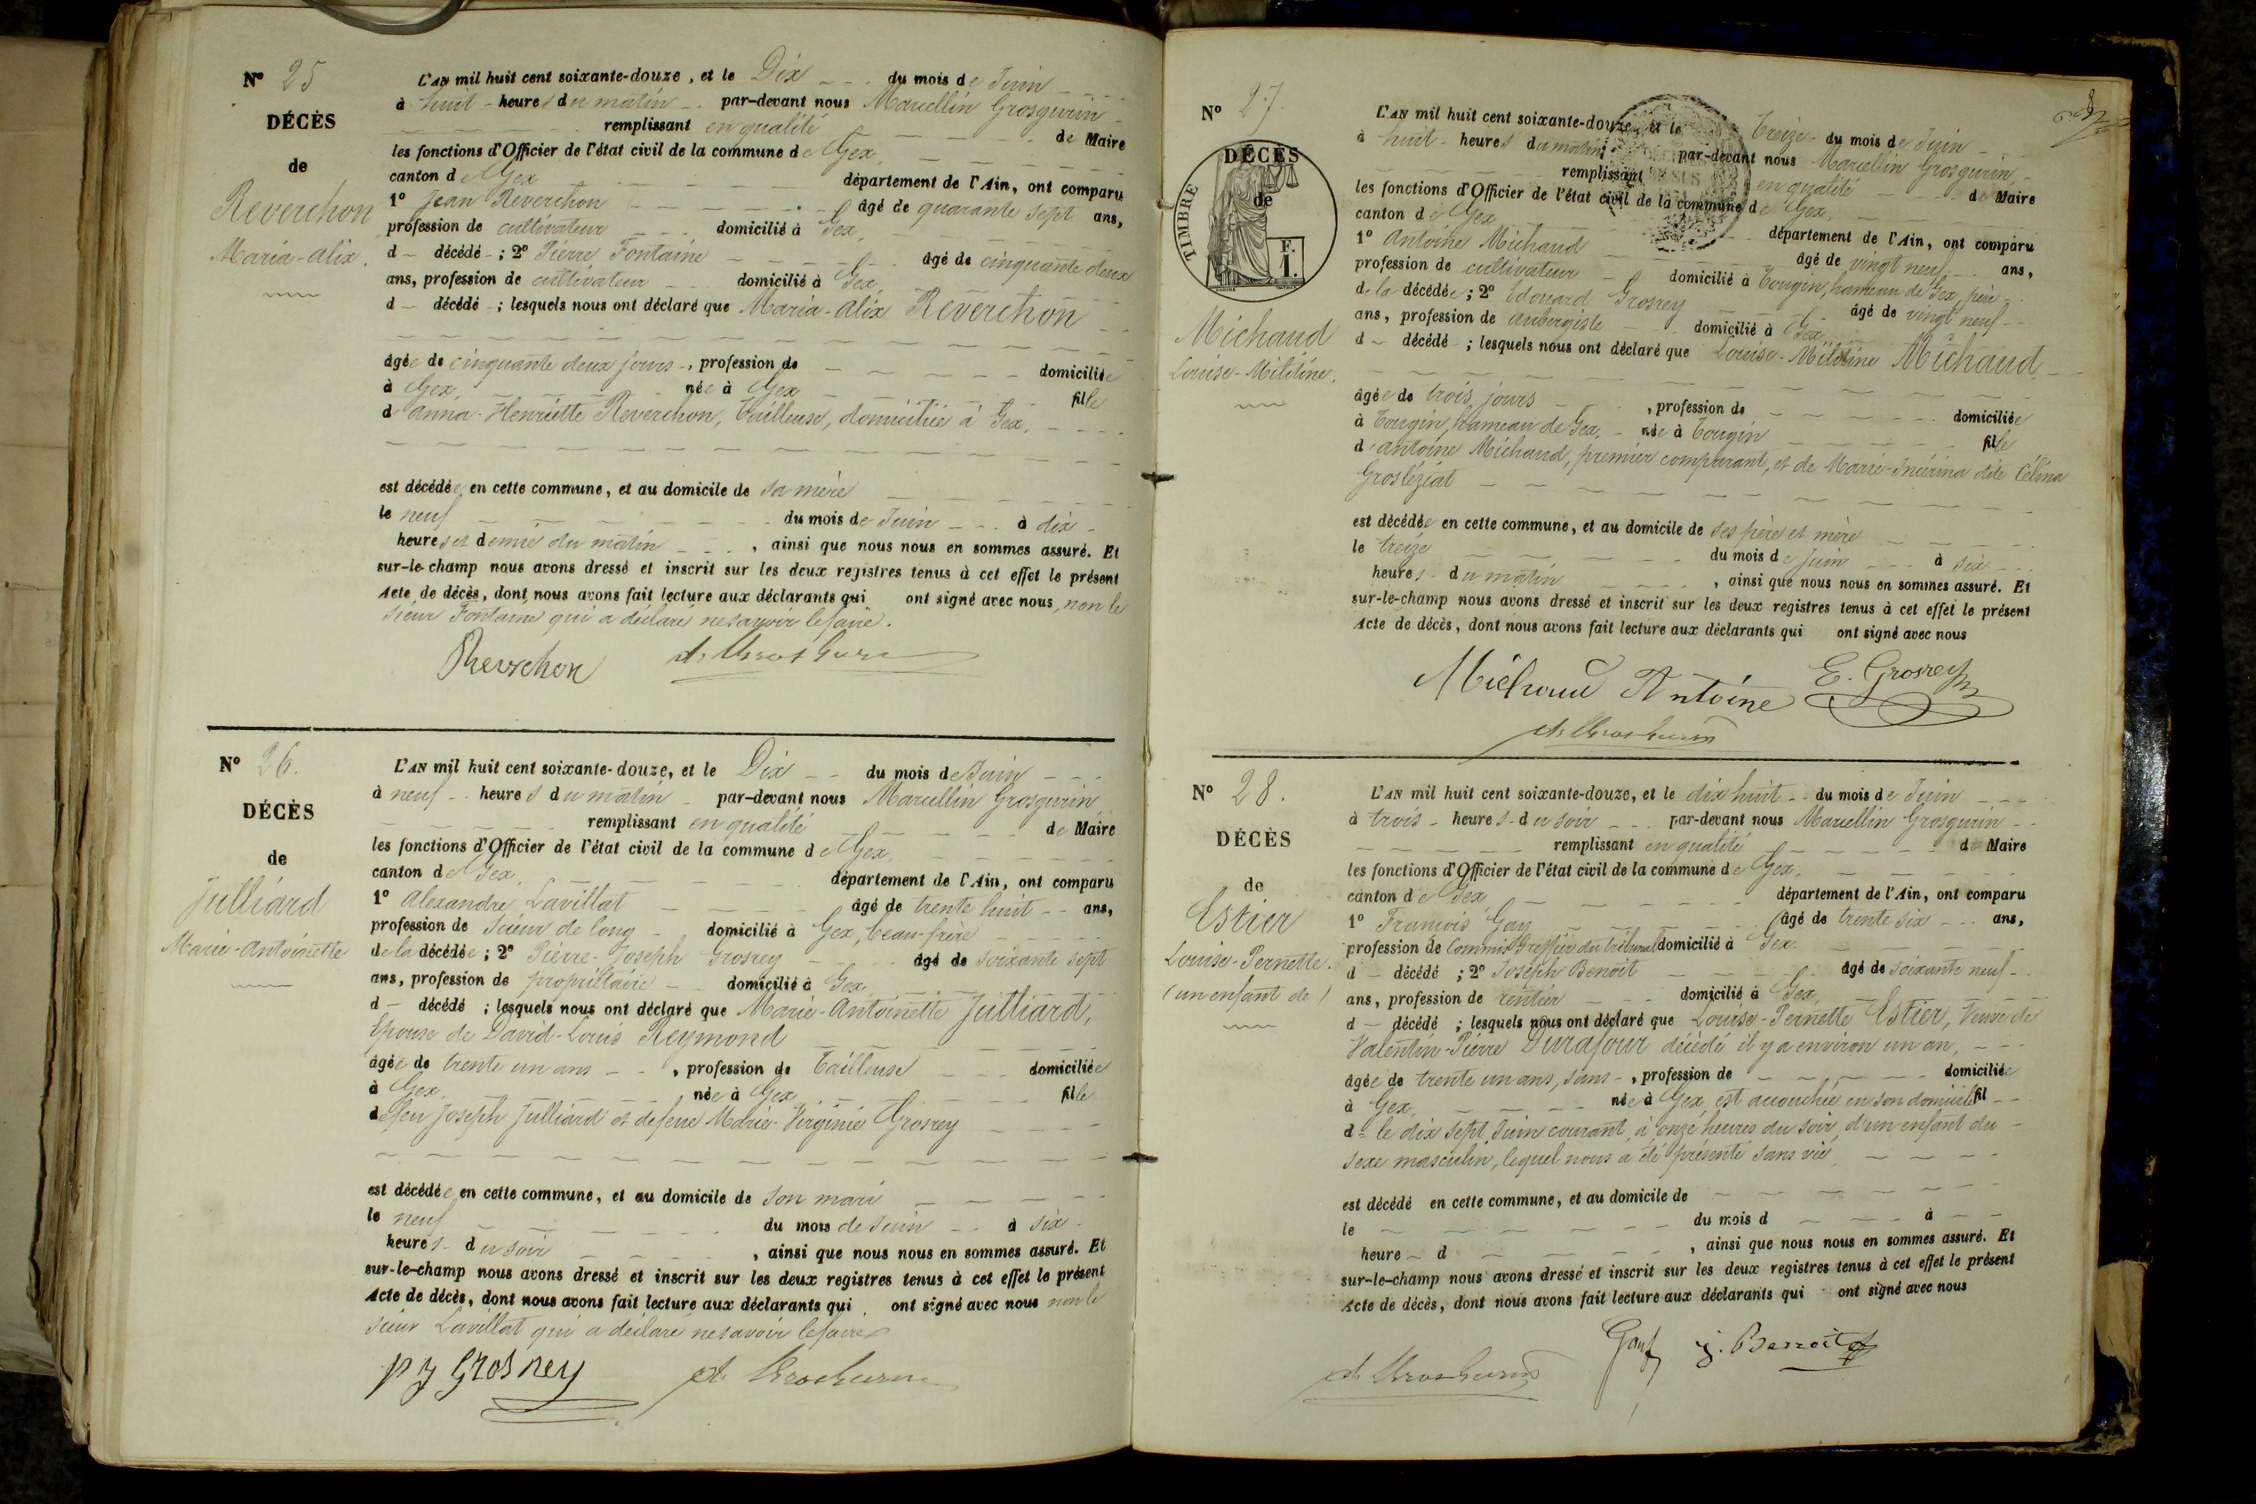 N° 25
DÉCÈS
de
Reverchon
Maria-Alix.
L'AN mil huit cent soixante-douze, et le Dix du mois de Juin
à huit heures du matin par-devant nous Marcellin Grosgurin
remplissant en qualité de Maire
les fonctions d'Officier de l'état civil de la commune de Gex,
canton de Gex département de l'Ain, ont comparu
1° Jean Reverchon âgé de quarante sept ans,
profession de cultivateur domicilié à Gex,
d décédé ; 2° Pierre Fontaine âgé de cinquante deux
ans, profession de cultivateur domicilié à Gex,
d décédé ; lesquels nous ont déclaré que Maria-Alix Reverchon
âgée de cinquante deux jours, profession de domiciliée
à Gex, née à Gex fille
d'Anna-Henriette Reverchon, Tailleuse, domiciliée à Gex,
est décédée en cette commune, et au domicile de sa mère
le neuf du mois de Juin à dix
heures et demie du matin, ainsi que nous nous en sommes assuré. Et
sur-le-champ nous avons dressé et inscrit sur les deux registres tenus à cet effet le présent
Acte de décès, dont nous avons fait lecture aux déclarants qui ont signé avec nous, non le
sieur Fontaine qui a déclaré ne savoir le faire.
Reverchon
N° 26.
DÉCÈS
de
Julliard
Marie-Antoinette
L'AN mil huit cent soixante-douze, et le Dix du mois de Juin
à neuf heures du matin par-devant nous Marcellin Grosgurin
remplissant en qualité de Maire
les fonctions d'Officier de l'état civil de la commune de Gex
canton de Gex, département de l'Ain, ont comparu
1° Alexandre Lavillat âgé de trente huit ans,
profession de Scieur de long domicilié à Gex, beau-frère
de la décédée ; 2° Pierre-Joseph Grosrey âgé de soixante sept
ans, profession de propriétaire domicilié à Gex
d décédé ; lesquels nous ont déclaré que Marie-Antoinette Julliard,
Epouse de David-Louis Reymond
âgée de trente un ans, profession de Tailleuse domiciliée
à Gex, née à Gex fille
de feu Joseph Julliard et de feue Marie-Virginie Grosrey
est décédée en cette commune, et au domicile de son mari
le neuf du mois de Juin à six
heures du soir, ainsi que nous nous en sommes assuré. Et
sur-le-champ nous avons dressé et inscrit sur les deux registres tenus à cet effet le présent
Acte de décès, dont nous avons fait lecture aux déclarants qui ont signé avec nous non le
sieur Lavillat qui a déclaré ne savoir le faire
p j Grosrey
N° 27.
DÉCÈS
de
TIMBRE
F.
1.
Michaud
Louise-Militine.
L'AN mil huit cent soixante-douze, et le Treize du mois de Juin
à huit heures du matin par-devant nous Marcellin Grosgurin
remplissant en qualité de Maire
les fonctions d'Officier de l'état civil de la commune de Gex,
canton de Gex département de l'Ain, ont comparu
1° Antoine Michaud âgé de vingt neuf ans,
profession de cultivateur domicilié à Tougin, hameau de Gex, père
de la décédée ; 2° Edouard Grosrey âgé de vingt neuf
ans, profession de aubergiste domicilié à Gex
d décédé ; lesquels nous ont déclaré que Louise-Militine Michaud
âgée de trois jours, profession de domiciliée
à Tougin, hameau de Gex, née à Tougin fille
d'Antoine Michaud, premier comparant, et de Marie- dite Célina
Grosléziat
est décédée en cette commune, et au domicile de ses père et mère
le treize du mois de Juin à six
heures du matin, ainsi que nous nous en sommes assuré. Et
sur-le-champ nous avons dressé et inscrit sur les deux registres tenus à cet effet le présent
Acte de décès, dont nous avons fait lecture aux déclarants qui ont signé avec nous
Michaud Antoine E. Grosrey
N° 28.
DÉCÈS
de
Estier
Louise-Pernette.
(un enfant de)
L'AN mil huit cent soixante-douze, et le dix huit du mois de Juin
à trois heures du soir par-devant nous Marcellin Grosgurin
remplissant en qualité de Maire
les fonctions d'Officier de l'état civil de la commune de Gex,
canton de Gex département de l'Ain, ont comparu
1° François Gay âgé de trente six ans,
profession de Commis Greffier du tribunal domicilié à Gex
d décédé ; 2° Joseph Benoit âgé de soixante neuf
ans, profession de rentier domicilié à Gex,
d décédé ; lesquels nous ont déclaré que Louise-Pernette Estier, Veuve de
Valentin-Pierre Durafour décédé il y a environ un an,
âgée de trente un ans, sans, profession de domiciliée
à Gex, née à Gex est accouchée en son domicile fil
d le dix sept Juin courant, à onze heures du soir, d'un enfant du
sexe masculin, lequel nous a été présenté sans vie,
est décédé en cette commune, et au domicile de
le du mois d à
heure d, ainsi que nous nous en sommes assuré. Et
sur-le-champ nous avons dressé et inscrit sur les deux registres tenus à cet effet le présent
Acte de décès, dont nous avons fait lecture aux déclarants qui ont signé avec nous
Gay j. Benoit